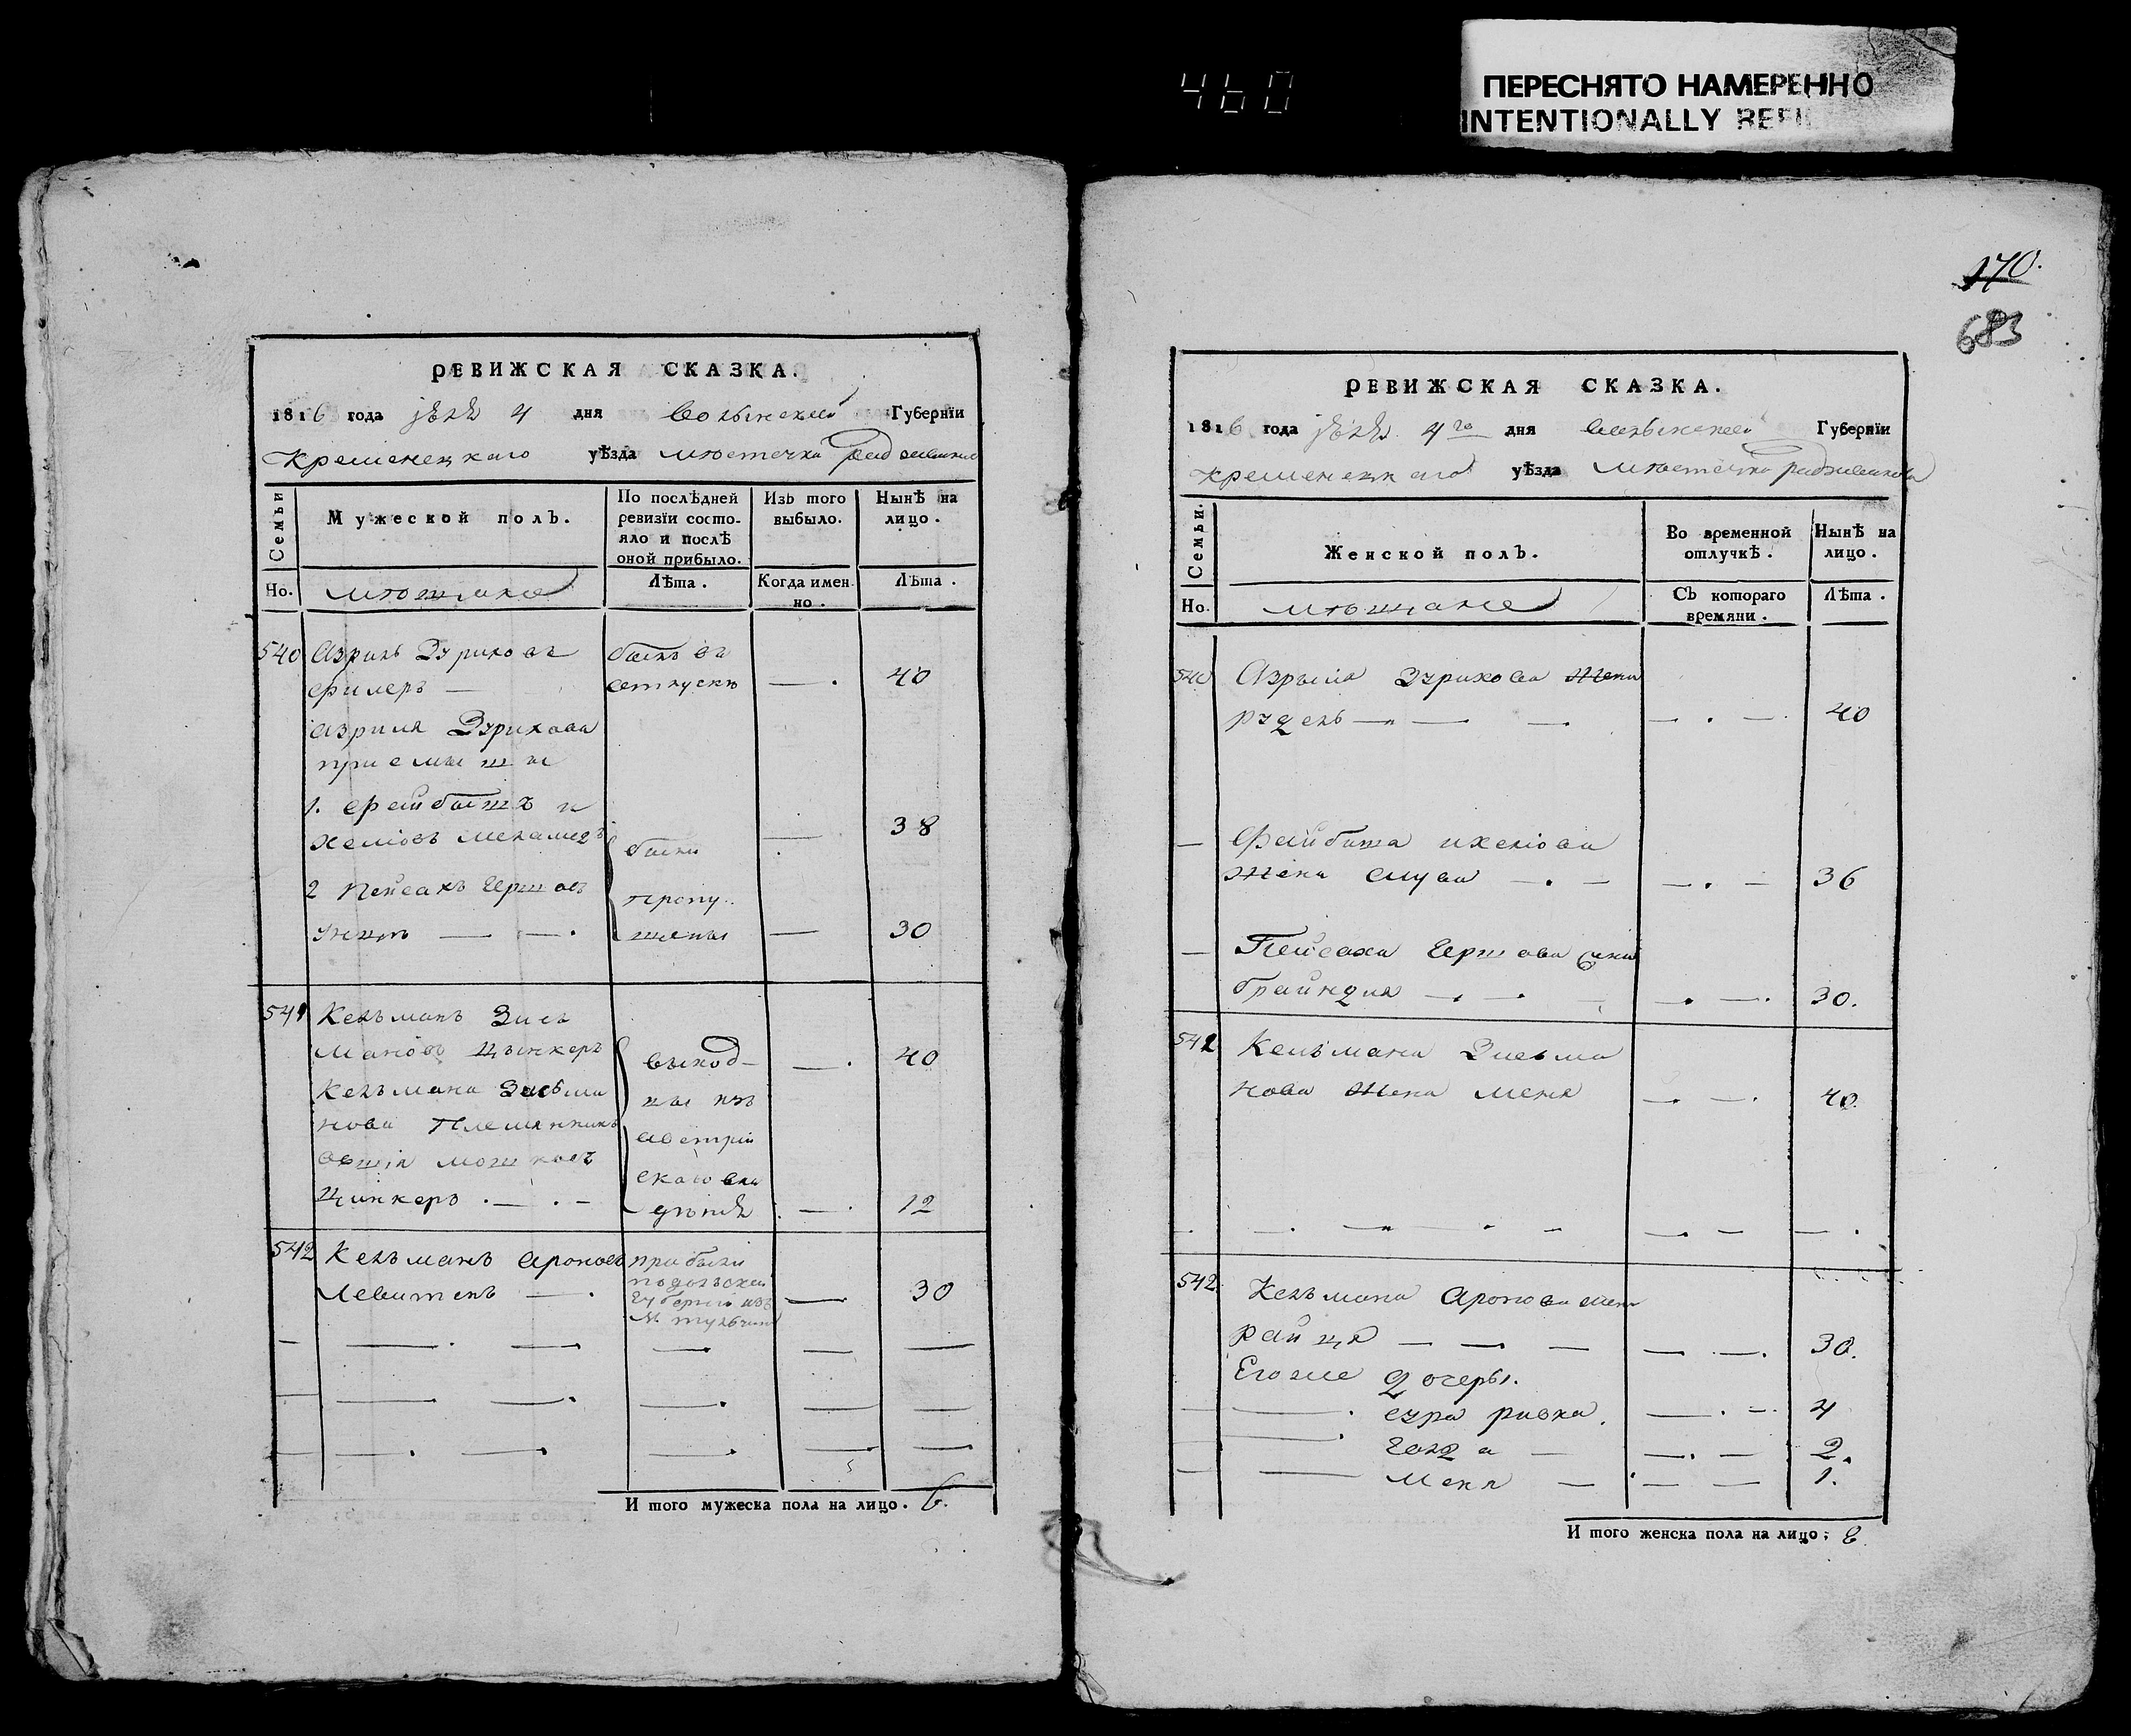 460
ПЕРЕСНЯТО НАМЕРЕННО
INTENTIONALLY REFI
РЕВИЖСКАЯ СКАЗКА.
1816 года 4 дня Волынской Губернїи
Кременецкаго уѣзда мѣстечка
Семьи
Мужеской полъ.
По послѣдней ревизїи состояло и послѣ оной прибыло.
Изъ того выбыло.
Нынѣ на лицо.
Но.
мѣщане
Лѣта.
Когда именно.
Лѣта.
540 Азриль Эриковъ былъ въ
Фишеръ — отпуску — . 40
Азриля Эрикова
приемыши
1. Фейбишъ и
хелювъ меламедъ были — 38
2 Пейсахъ Гершов пропу..
щены — 30
541 Кельманъ Зись
мановъ Цынкеръ выход- — . 40
Кельмана Зисьма цы изъ
нова Племянникъ австрій
мошков скаго вла
Цинкеръ . — . — дѣнія . — . 12
542 Кельманъ Аронов прибыли
Левитенъ — . подольской — 30
губерніи изъ
м. тульчина
И того мужеска пола на лицо. 6.
170.
683
РЕВИЖСКАЯ СКАЗКА.
1816 года 4го дня Волынской Губернїи
Кременецкаго уѣзда мѣстечка Радзивилова
Семьи.
Женской полъ.
Во временной отлучкѣ.
Нынѣ на лицо.
Но.
мѣщане
Съ котораго времяни.
Лѣта.
540 Азрыля Эрикова жена
рудель — — — — . — . 40
— Фейбиша ихелюва
жена — . — — . — 36
— Пейсаха Гершова жена
брайндля — . — . — — . — . 30.
541 Кельмана Зисьма
нова жена меня — . — . 40.
542. Кельмана Аронова жена
райця — — — — . — . 30.
Его же дочеры.
— — . сура ривка. — . — . 4
— . голда — — . — 2.
— — меня — — — 1.
И того женска пола на лицо; 8.